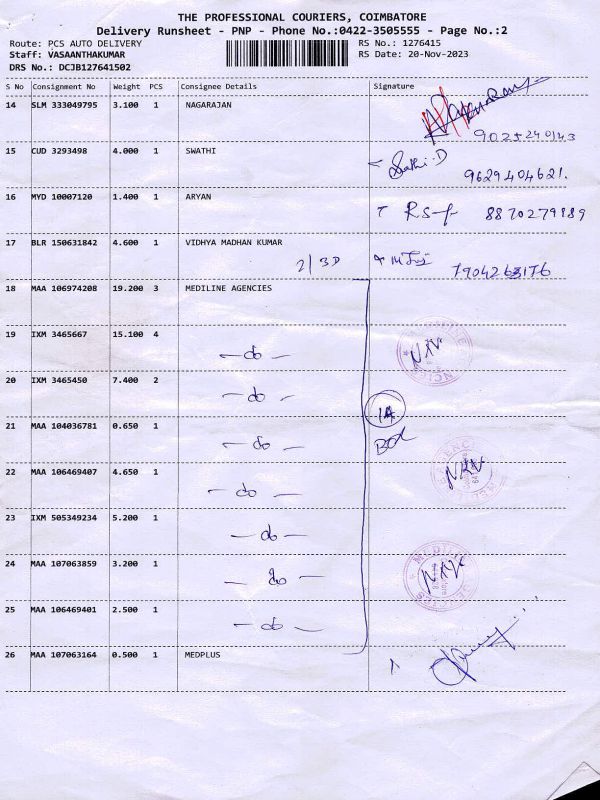 THE PROFESSIONAL COURIERS, COIMBATORE
Delivery Runsheet - PNP - Phone No.:0422-3505555 - Page No.:2
Route: PCS AUTO DELIVERY RS No.: 1276415
Staff: VASAANTHAKUMAR RS Date: 20-Nov-2023
DRS No.: DCJB127641502
S No Consignment No Weight PCS Consignee Details Signature
14 SLM 333049795 3.100 1 NAGARAJAN
9025240143
15 CUD 3293498 4.000 1 SWATHI Swathi.D
9629404621.
16 MYD 10007120 1.400 1 ARYAN
8870279889
17 BLR 150631842 4.600 1 VIDHYA MADHAN KUMAR
2/3D 7904263176
18 MAA 106974208 19.200 3 MEDILINE AGENCIES
19 IXM 3465667 15.100 4
- do -
20 IXM 3465450 7.400 2
- do - 14
21 MAA 104036781 0.650 1 BOX
- do -
22 MAA 106469407 4.650 1
- do -
23 IXM 505349234 5.200 1
- do -
24 MAA 107063859 3.200 1
- do - MEDILINE
25 MAA 106469401 2.500 1
- do -
26 MAA 107063164 0.500 1 MEDPLUS